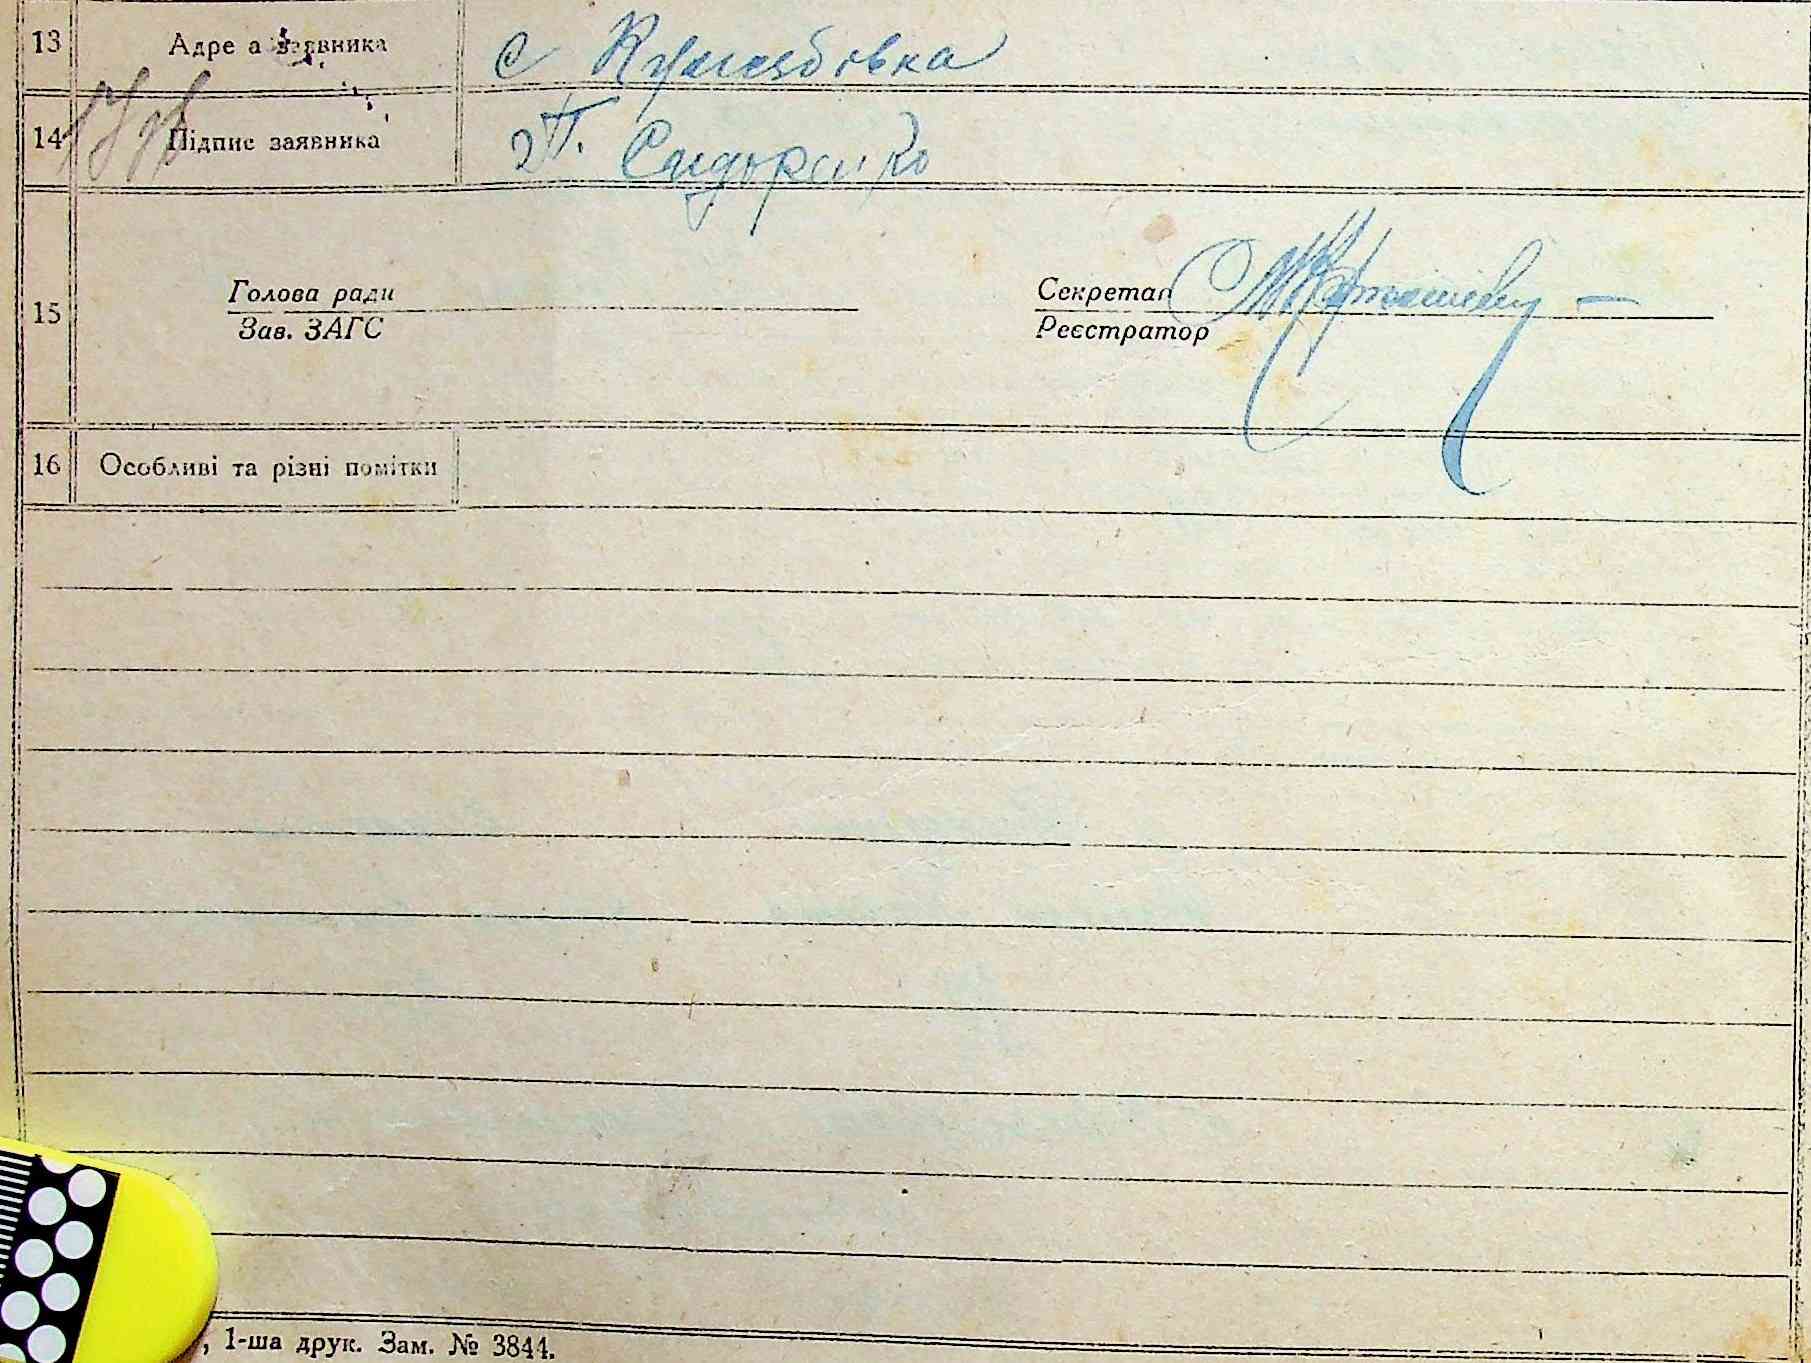 13 Адре а заявника с
14 Підпис заявника П. Сидоренко
15
Голова ради
Зав. ЗАГС
Секретар
Реєстратор
16 Особливі та різні помітки
, 1-ша друк. Зам. № 3844.